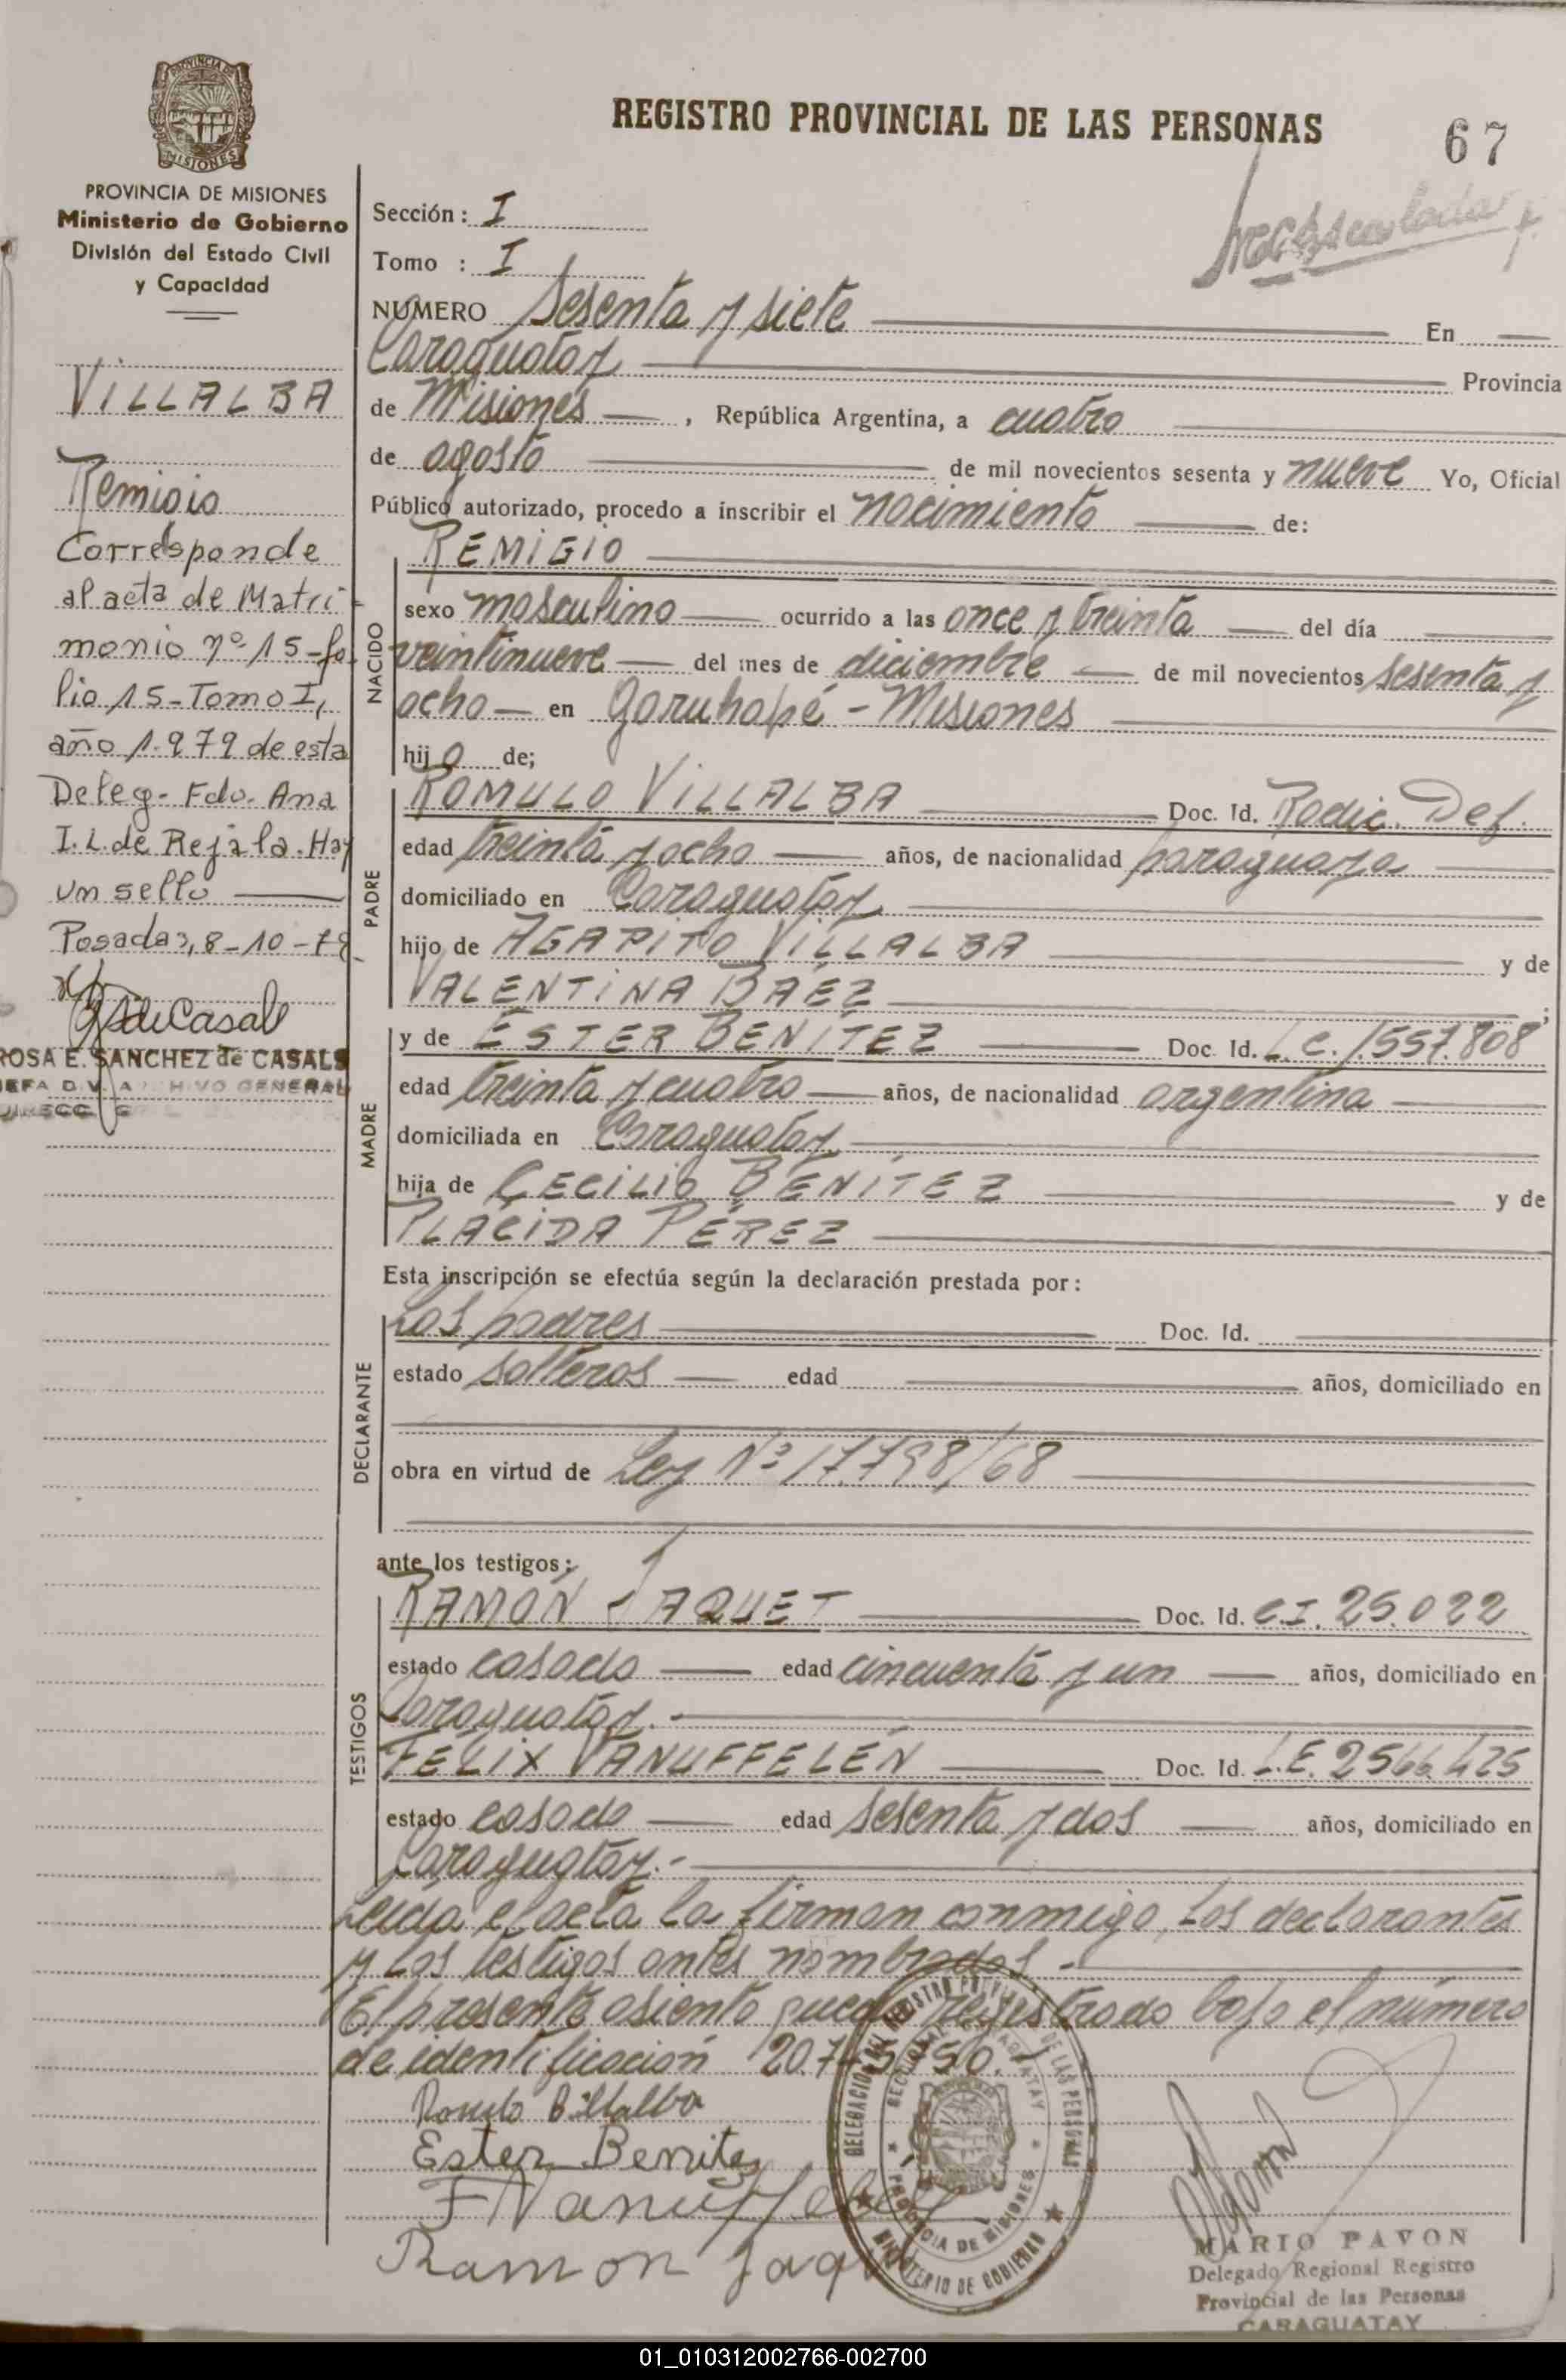 REGISTRO PROVINCIAL DE LAS PERSONAS
67
PROVINCIA DE
MISIONES
PROVINCIA DE MISIONES
Ministerio de Gobierno
División del Estado Civil
y Capacidad
VILLALBA
Remigio
Corresponde
al acta de Matri
monio nº 15-fo
lio 15-Tomo I,
año 1.979 de esta
Deleg- Fdo. Ana
I.L. de Rejala. Hay
un sello
Posadas, 8-10-79
ROSA E. SANCHEZ de CASALS
JEFA DIV. ARCHIVO GENERAL
Sección: I
Tomo : I
NUMERO Sesenta y siete En
Caraguatay Provincia
de Misiones, República Argentina, a cuatro
de agosto de mil novecientos sesenta y nueve Yo, Oficial
Público autorizado, procedo a inscribir el nacimiento de:
NACIDO
REMIGIO
sexo masculino ocurrido a las once y treinta del día
veintinueve del mes de diciembre de mil novecientos sesenta y
ocho en Garuhapé - Misiones
hijo de;
PADRE
ROMULO VILLALBA Doc. Id. Radic. Def.
edad treinta y ocho años, de nacionalidad paraguaya
domiciliado en Caraguatay
hijo de AGAPITO VILLALBA y de
VALENTINA BAÉZ;
MADRE
y de ESTER BENÍTEZ Doc. Id. L.C. 1.557.808
edad treinta y cuatro años, de nacionalidad argentina
domiciliada en Caraguatay
hija de CECILIO BENÍTEZ y de
PLÁCIDA PÉREZ
Esta inscripción se efectúa según la declaración prestada por:
DECLARANTE
Los padres Doc. Id.
estado solteros edad años, domiciliado en
obra en virtud de Ley Nº 17.798/68
ante los testigos:
TESTIGOS
RAMÓN JAQUET Doc. Id. C.I. 25.022
estado casado edad cincuenta y un años, domiciliado en
Caraguatay.-
FÉLIX VANUFFELÉN Doc. Id. L.E. 2566.425
estado casado edad sesenta y dos años, domiciliado en
Caraguatay.-
Leída el acta la firman conmigo, los declarantes
y los testigos antes nombrados.-
El presente asiento queda registrado bajo el número
de identificación
Romulo Billalba
Ester Benitez
F Vanuffelen
Ramon Jaquet
DELEGACION DEL REGISTRO PROVINCIAL DE LAS PERSONAS
SECCIONAL CARAGUATAY
PROVINCIA DE MISIONES
MINISTERIO DE GOBIERNO
MARIO PAVON
Delegado Regional Registro
Provincial de las Personas
CARAGUATAY
01_010312002766-002700